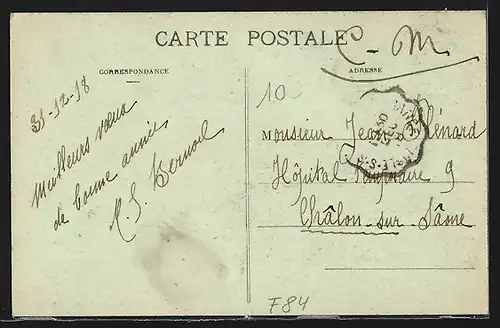 CARTE POSTALE
C-M
CORRESPONDANCE
ADRESSE
31-12-18
Meilleurs vœux
de bonne année
10
Monsieur Jean
Hôpital 9
Châlon-sur-Saône
F84